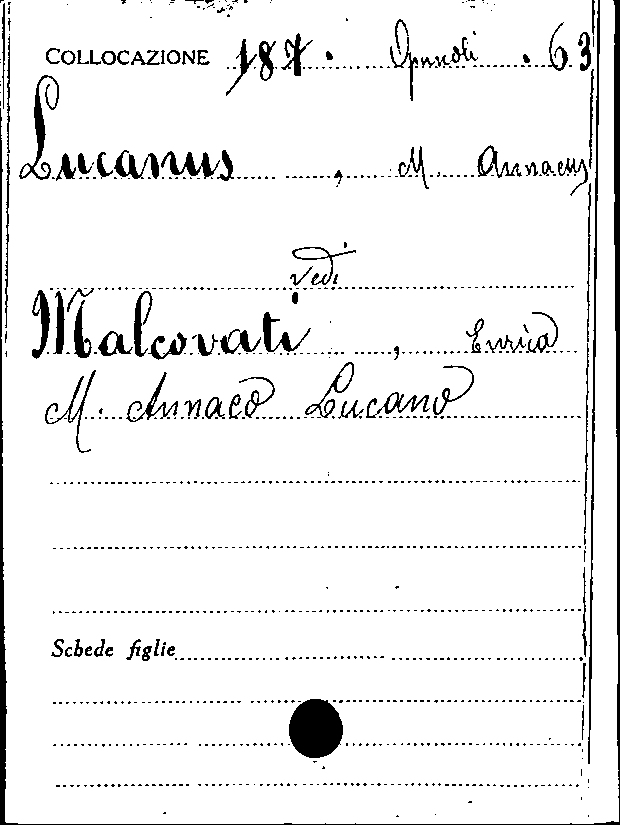 COLLOCAZIONE 187. Opuscoli. 63
Lucanus, M. Annaeus
Vedi
Malcovati, Enrica
M. Annaeo Lucano
Schede figlie